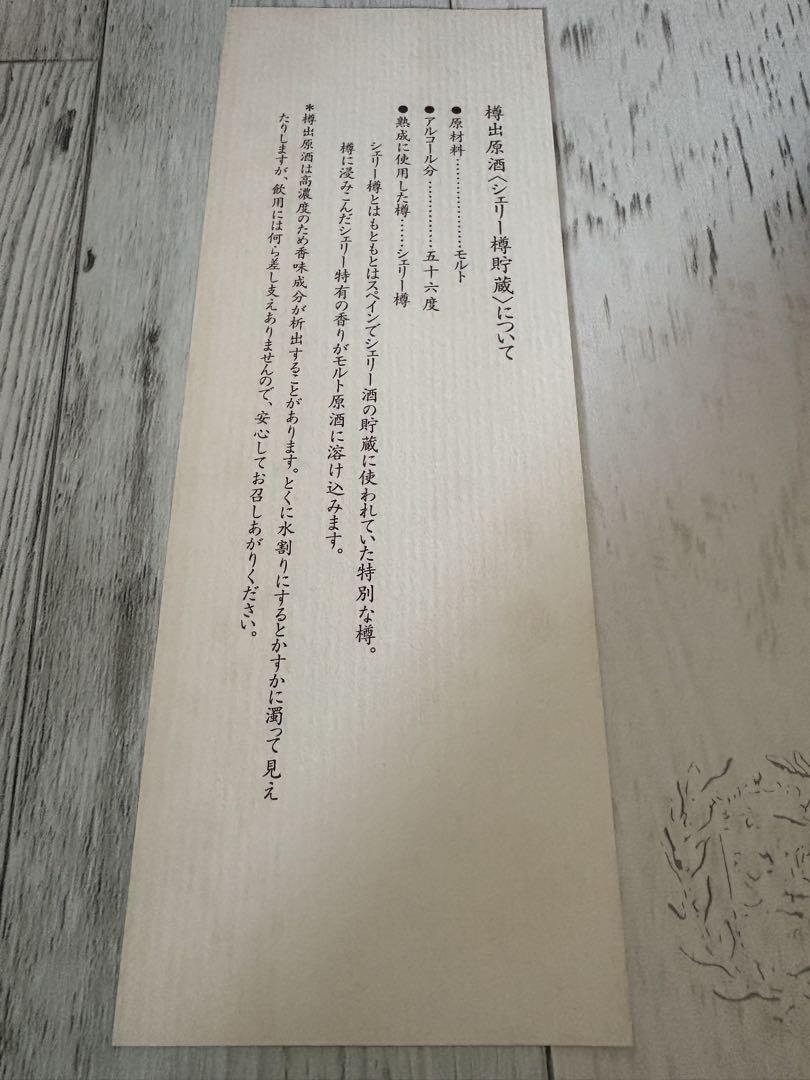 樽出原酒〈シェリー樽貯蔵〉について
●原材料………………モルト
●アルコール分……………五十六度
●熟成に使用した樽……シェリー樽
シェリー樽とはもともとはスペインでシェリー酒の貯蔵に使われていた特別な樽。
樽に浸みこんだシェリー特有の香りがモルト原酒に溶け込みます。
＊樽出原酒は高濃度のため香味成分が析出することがあります。とくに水割りにするとかすかに濁って見え
たりしますが、飲用には何ら差し支えありませんので、安心してお召しあがりください。